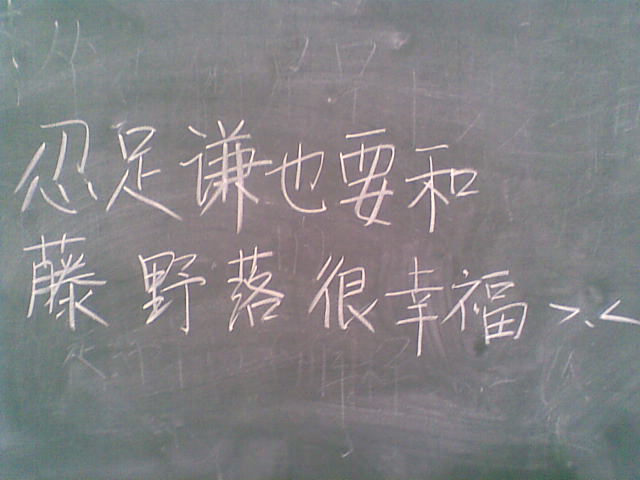 忍足谦也要和
藤野落很幸福 >.<